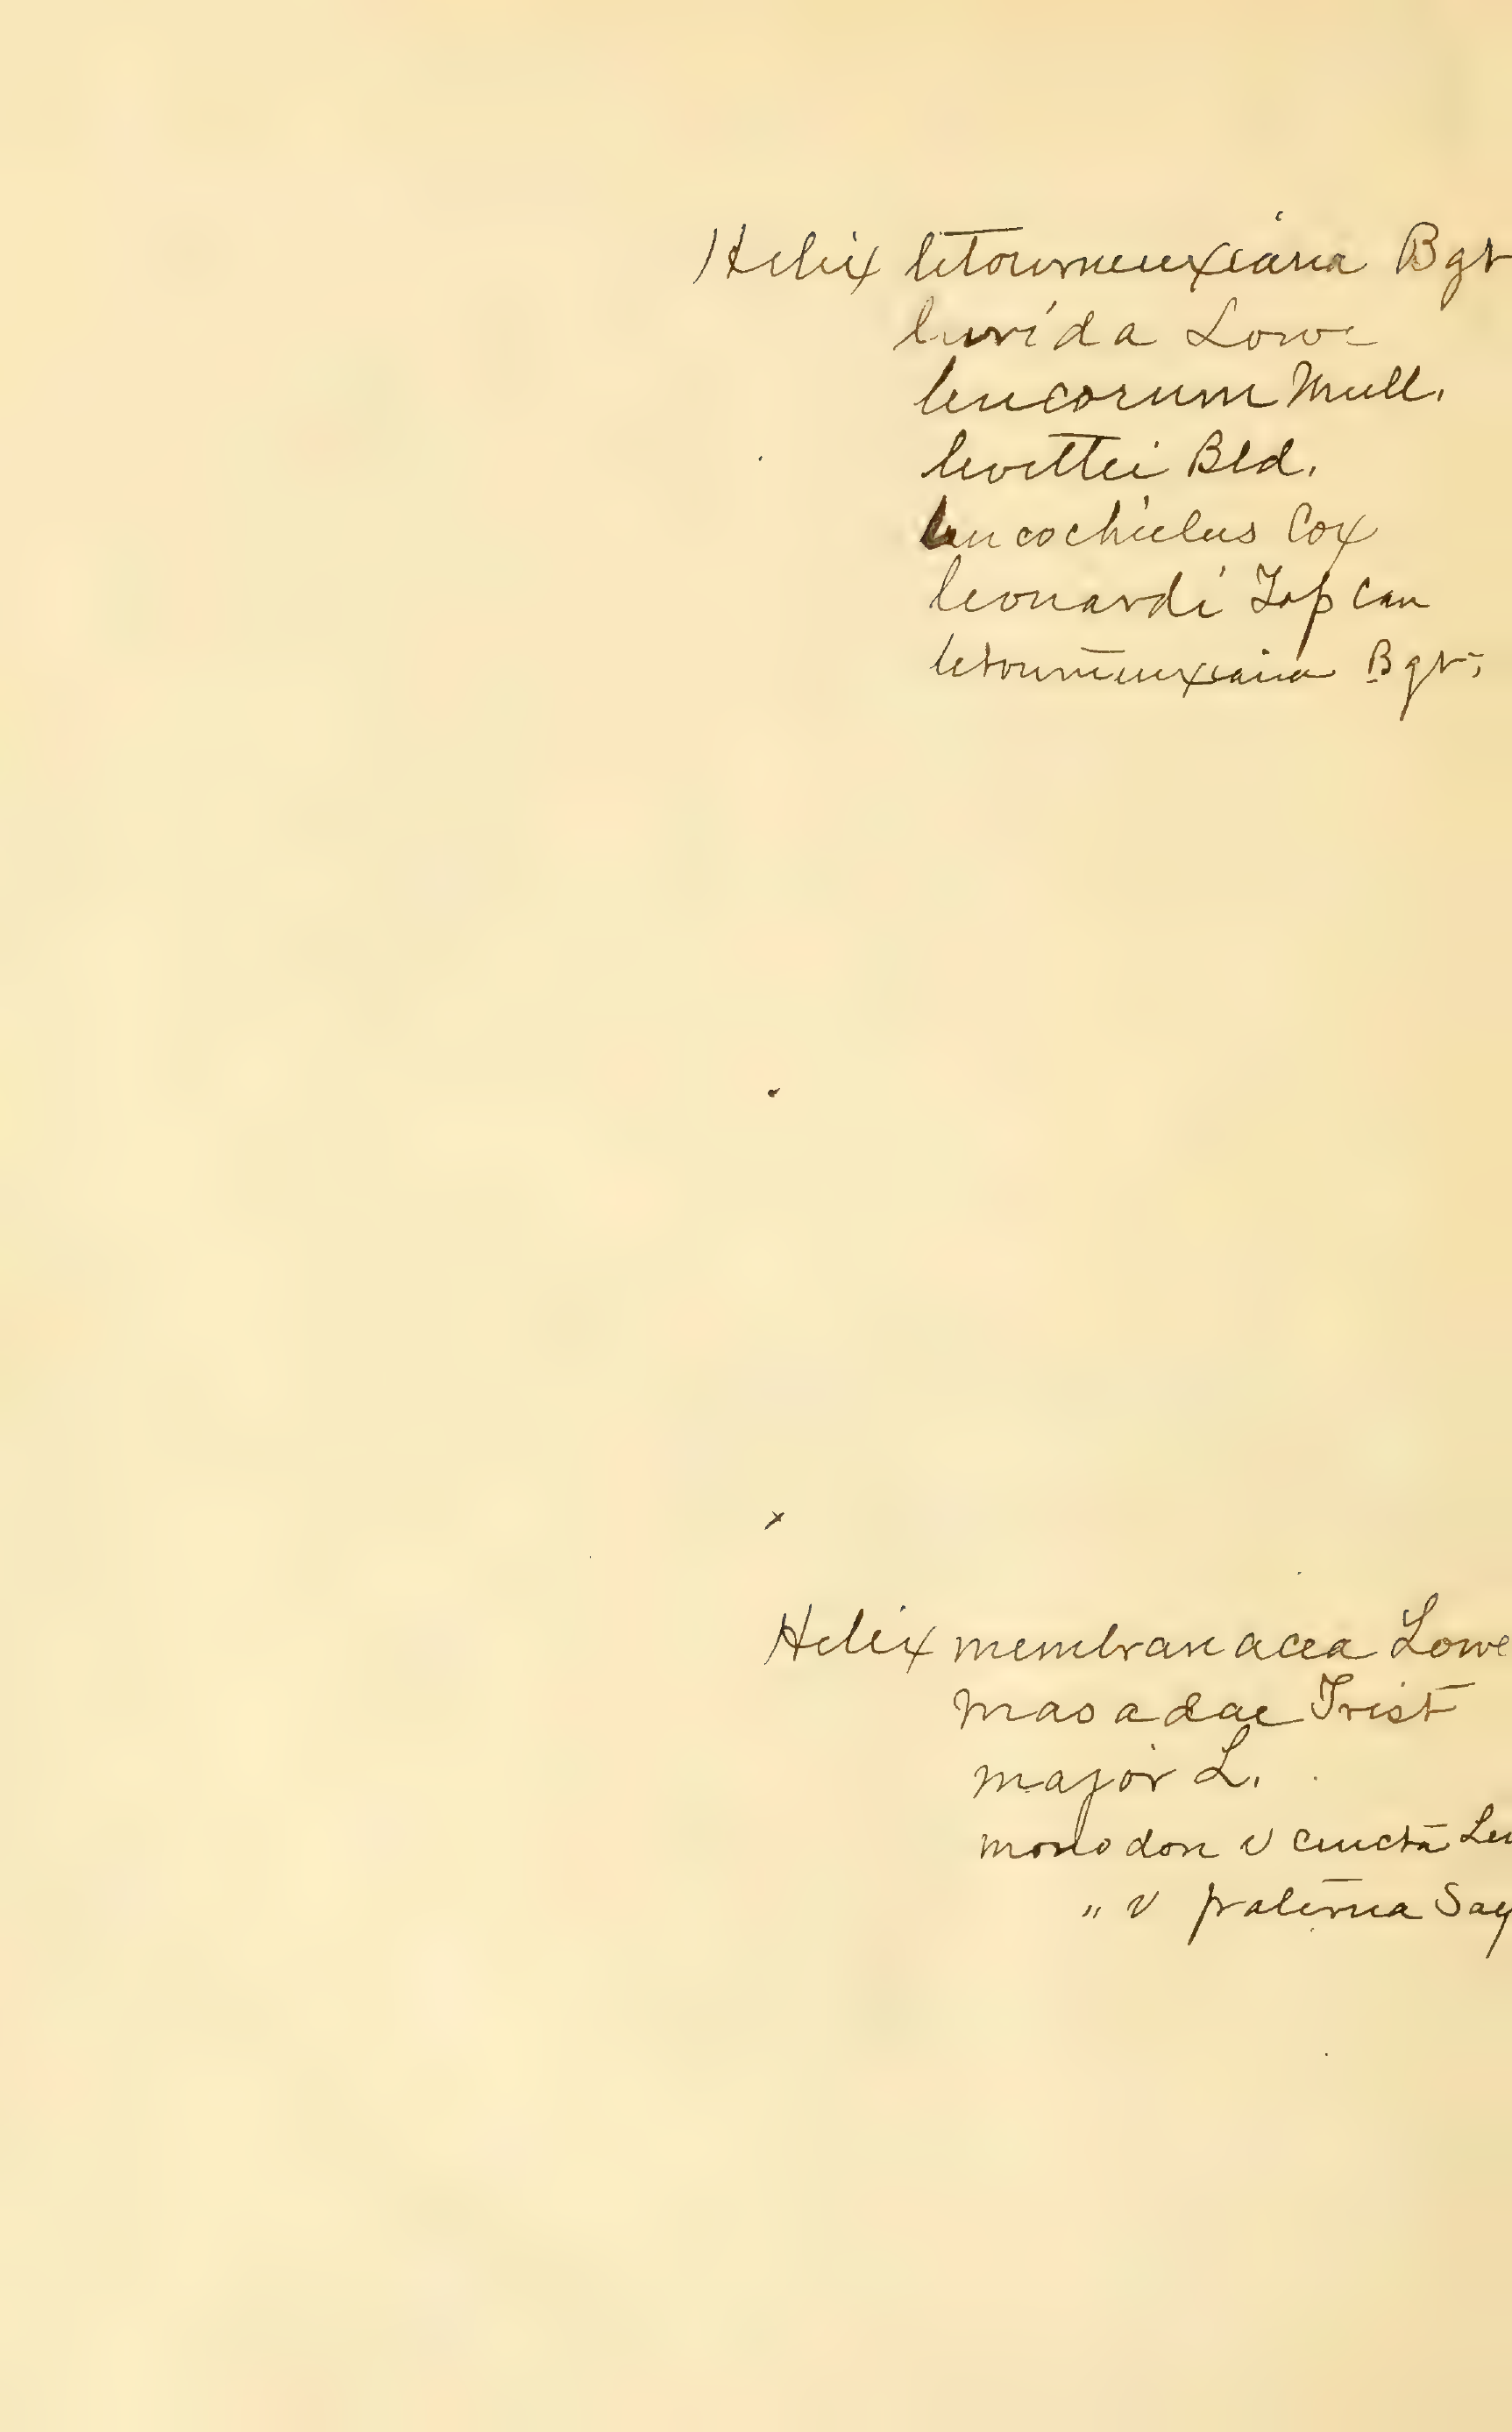 Helix letourneuxiana Bgt
lurida Lowe
leucorum Mull.
levettei Bld.
leucochielus Cox
leonardi Tap Can
letourneuxiana Bgt;
Helix membranacea Lowe
masadae Trist
major L.
monodon v cincta
" v fraterna Say